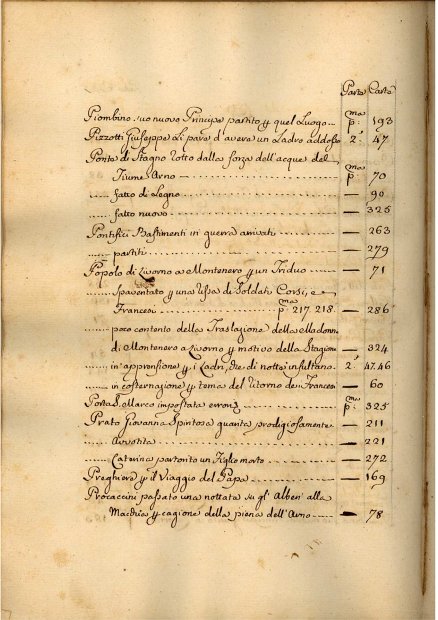 Parte Carte
Piombino suo nuovo Principe partito p quel Luogo pma p: 193
Pizzotti Giuseppe li pare d'avere un Ladro addosso 2a 47
Ponte di Stagno rotto dalla forza dell'acque del
Fiume Arno pma p: 70
fatto di Legno 90
fatto nuovo 325
Pontifici Bastimenti in guerra arrivati 263
partiti 279
Popolo di Livorno a Montenero p un Triduo 71
spaventato p una Rissa di Soldati Corsi, e
Francesi pma p: 217. 218. 286
poco contento della Traslazione della Madonna
di Montenero a Livorno p motivo della Stagione 324
in apprensione p i Ladri, che di notte insultano 2a 47.46
in costernazione p tema del ritorno de Francesi 60
Porta S. Marco impostata pma p: 325
Prato Giovanna Spiritosa guarita prodigiosamente 211
221
Caterina partorito un Figlio morto 272
Preghiere p il Viaggio del Papa 169
Procaccini passato una nottata su gl'Alberi alla
p cagione della piena dell'Arno 78